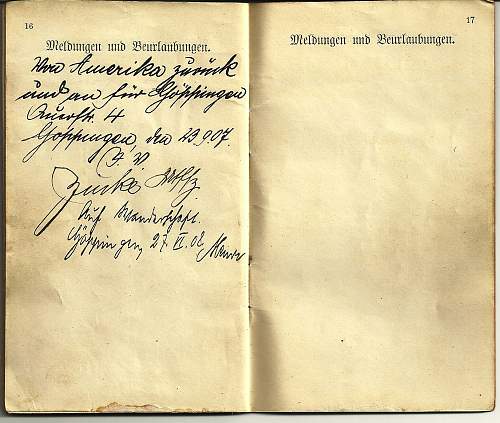 16
Meldungen und Beurlaubungen.
Von Amerika zurück
und an für Göppingen
4
Göppingen, den 23.9.07.
I. V
Auf Wanderschaft.
Göppingen, 27. VI. 08
17
Meldungen und Beurlaubungen.